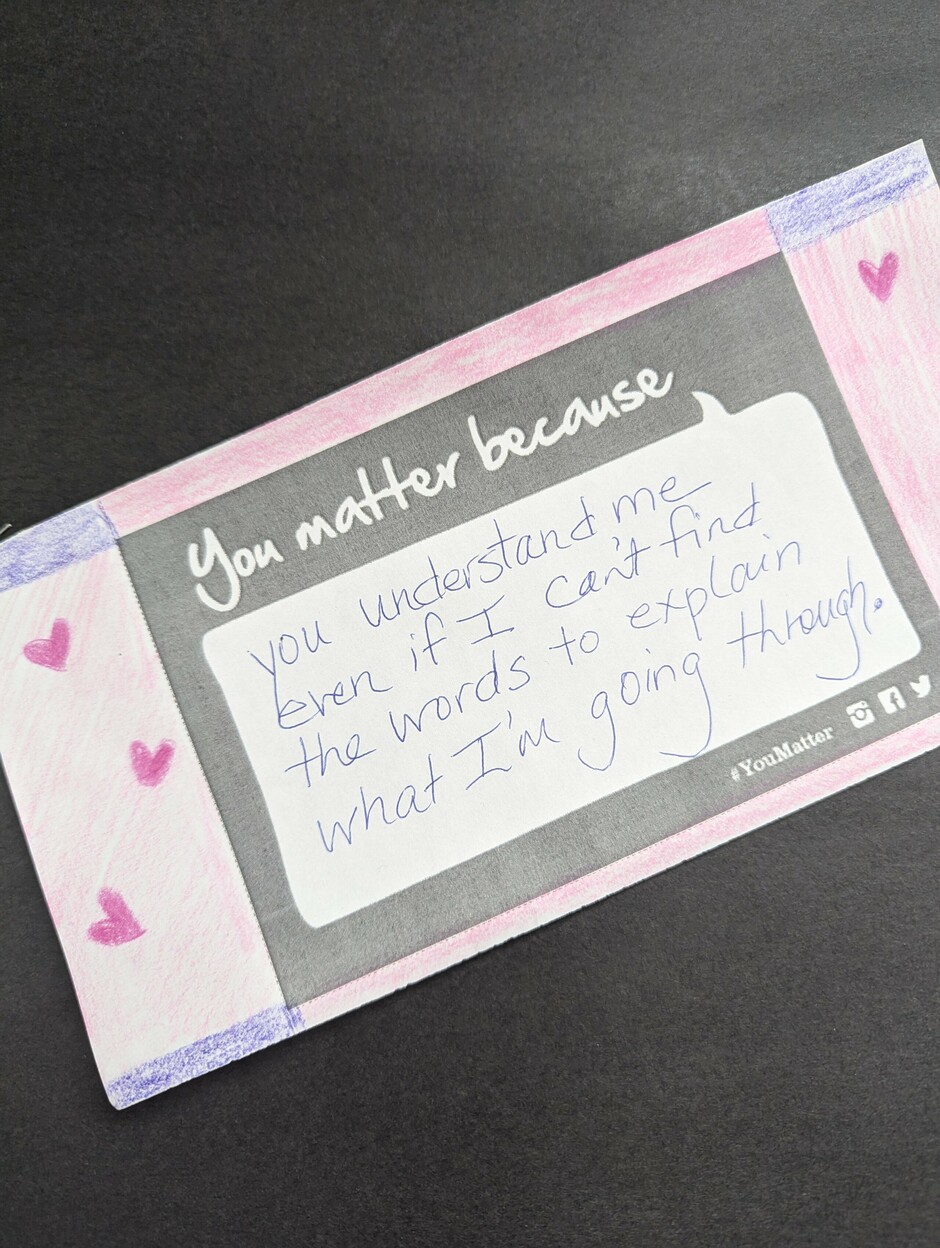 You matter because
you understand me
even if I can't find
the words to explain
what I'm going through.
#YouMatter